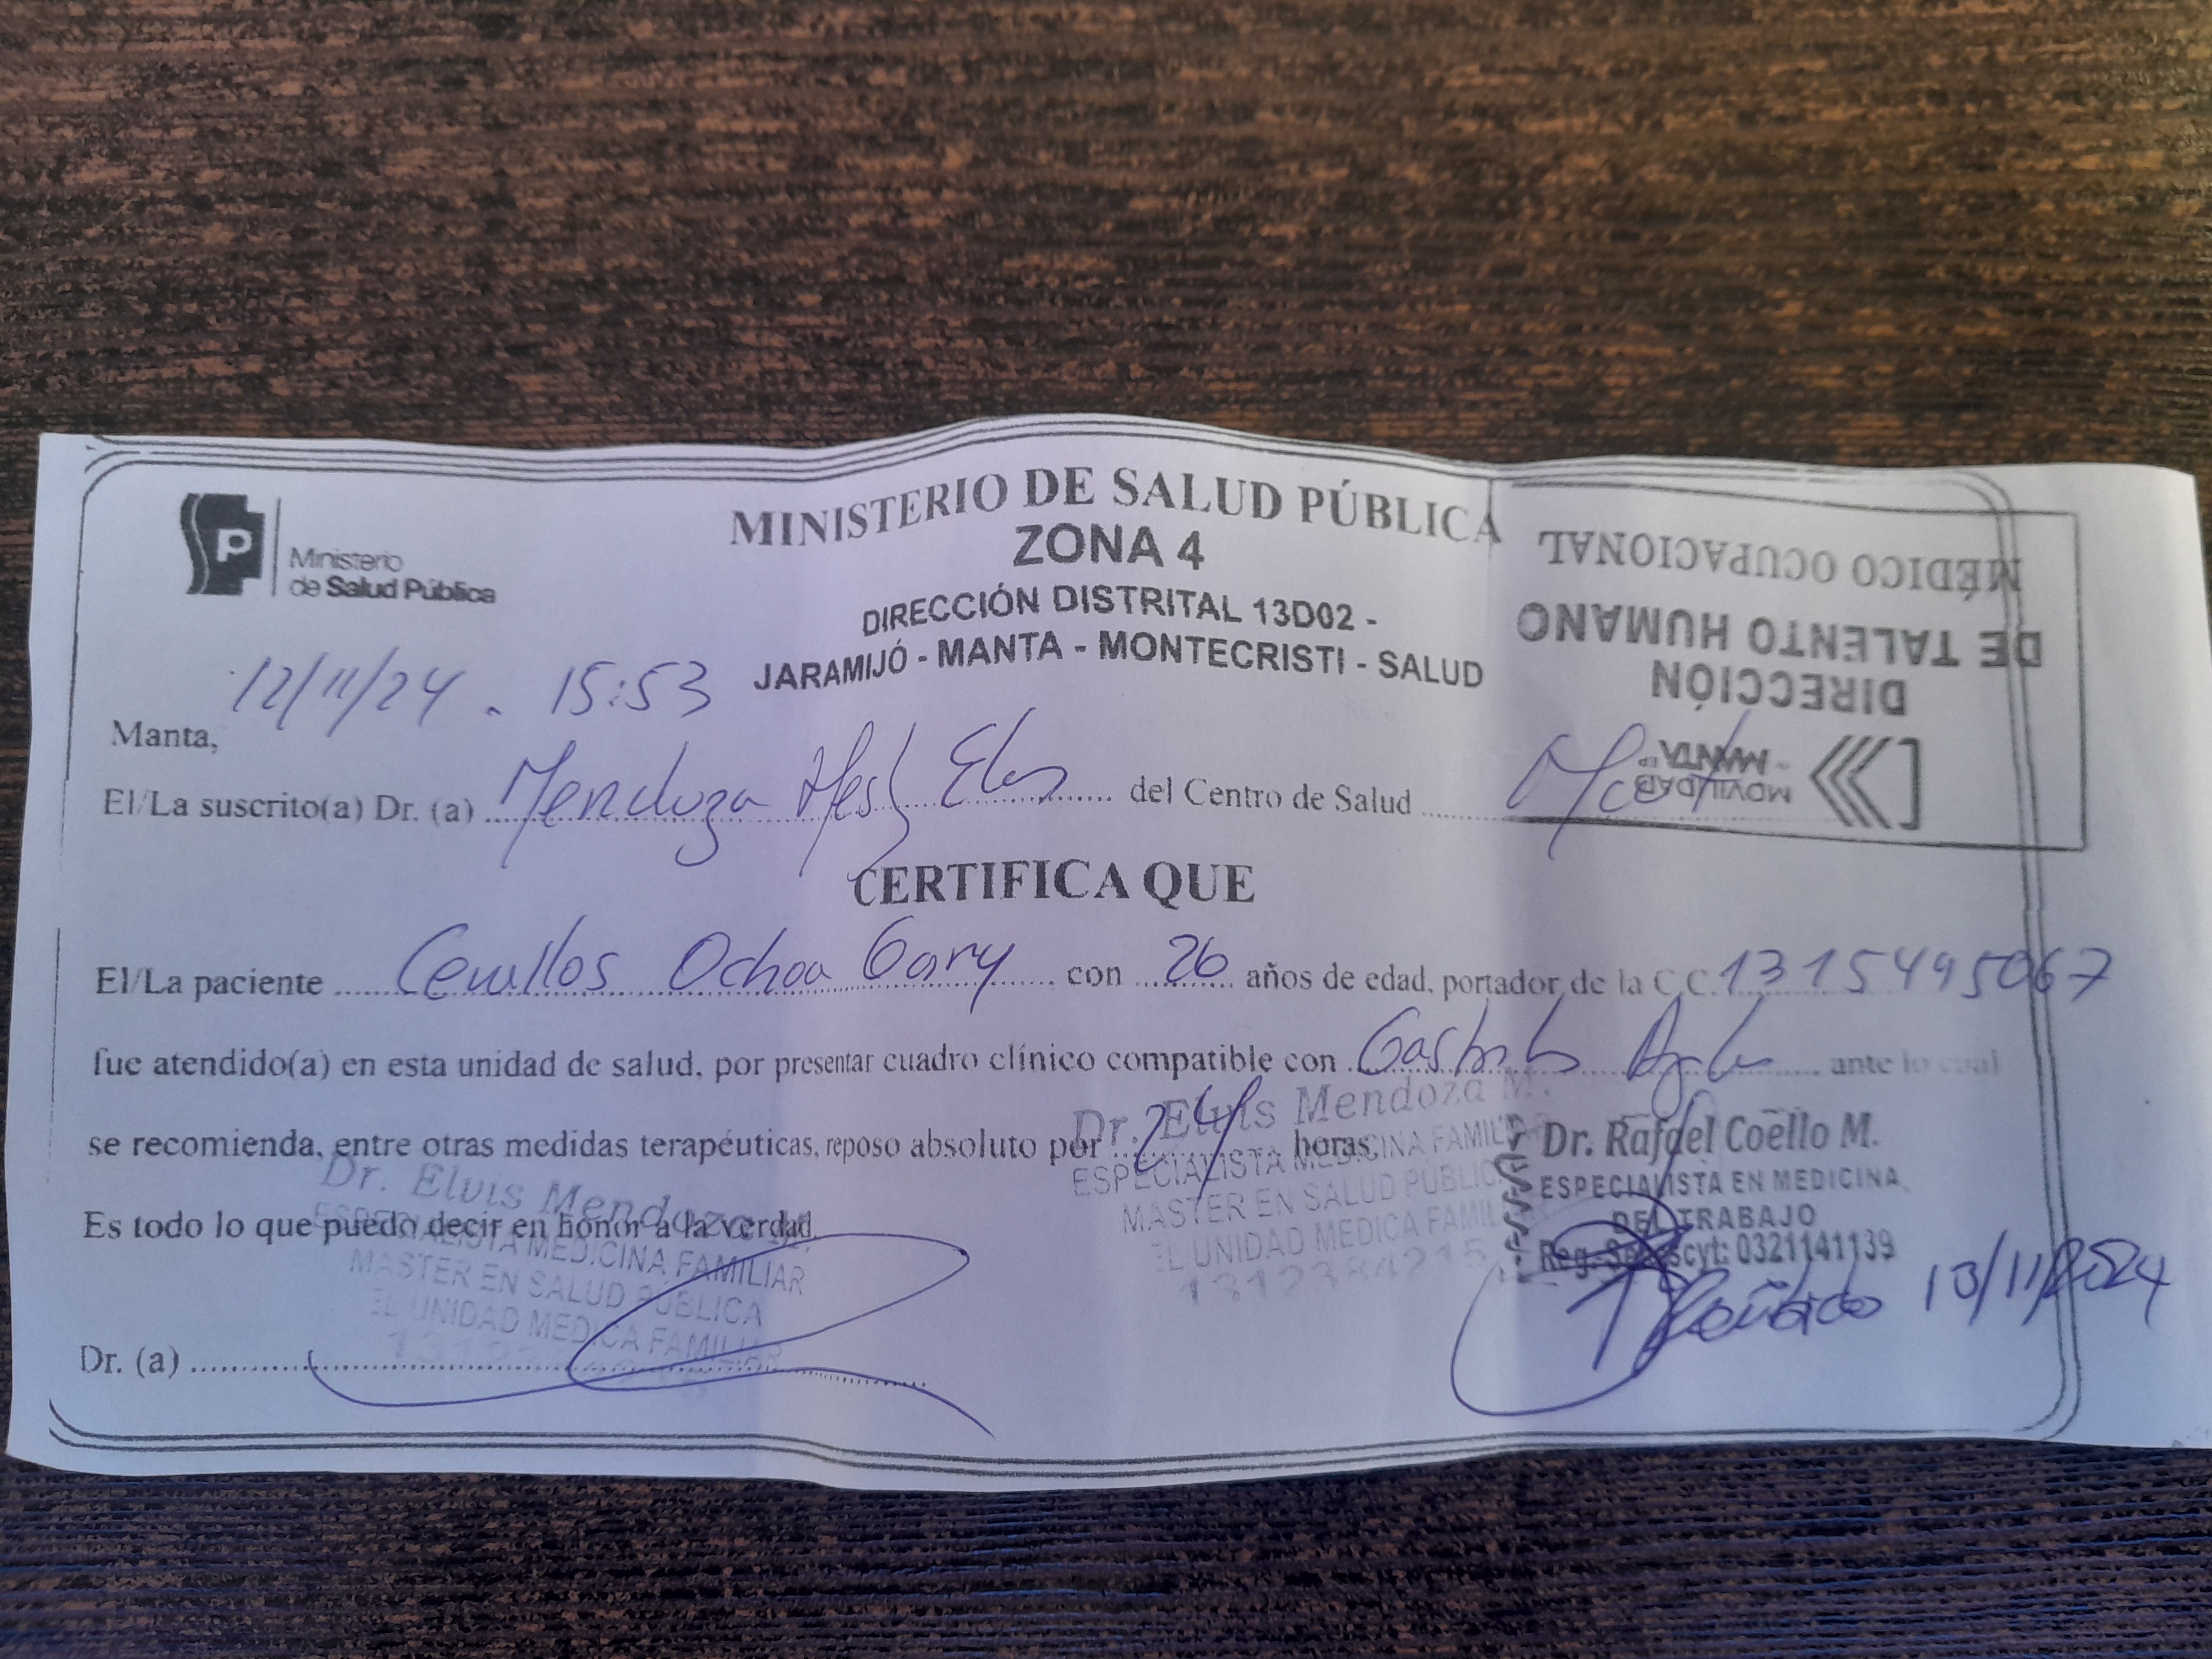 Ministerio
de Salud Pública
MINISTERIO DE SALUD PÚBLICA
ZONA 4
DIRECCIÓN DISTRITAL 13D02 -
JARAMIJÓ - MANTA - MONTECRISTI - SALUD
MÉDICO OCUPACIONAL
DE TALENTO HUMANO
DIRECCIÓN
MOVILIDAD
MANTA-EP
Manta, 12/11/24 - 15:53
El/La suscrito(a) Dr. (a) Mendoza del Centro de Salud
CERTIFICA QUE
El/La paciente Cevallos Ochoa Gary con 26 años de edad, portador de la C.C. 1315449506 7
fue atendido(a) en esta unidad de salud, por presentar cuadro clínico compatible con ante lo cual
se recomienda, entre otras medidas terapéuticas, reposo absoluto por horas.
Es todo lo que puedo decir en honor a la verdad
Dr. (a)
Dr. Elvis Mendoza
ESPECIALISTA MEDICINA FAMILIAR
MASTER EN SALUD PÚBLICA
UNIDAD MEDICA FAMILIAR
Dr. Elvis Mendoza M.
ESPECIALISTA MEDICINA FAMILIAR
MASTER EN SALUD PUBLICA
UNIDAD MEDICA FAMILIAR
Dr. Rafael Coello M.
ESPECIALISTA EN MEDICINA
DEL TRABAJO
0321141139
13/11/2024